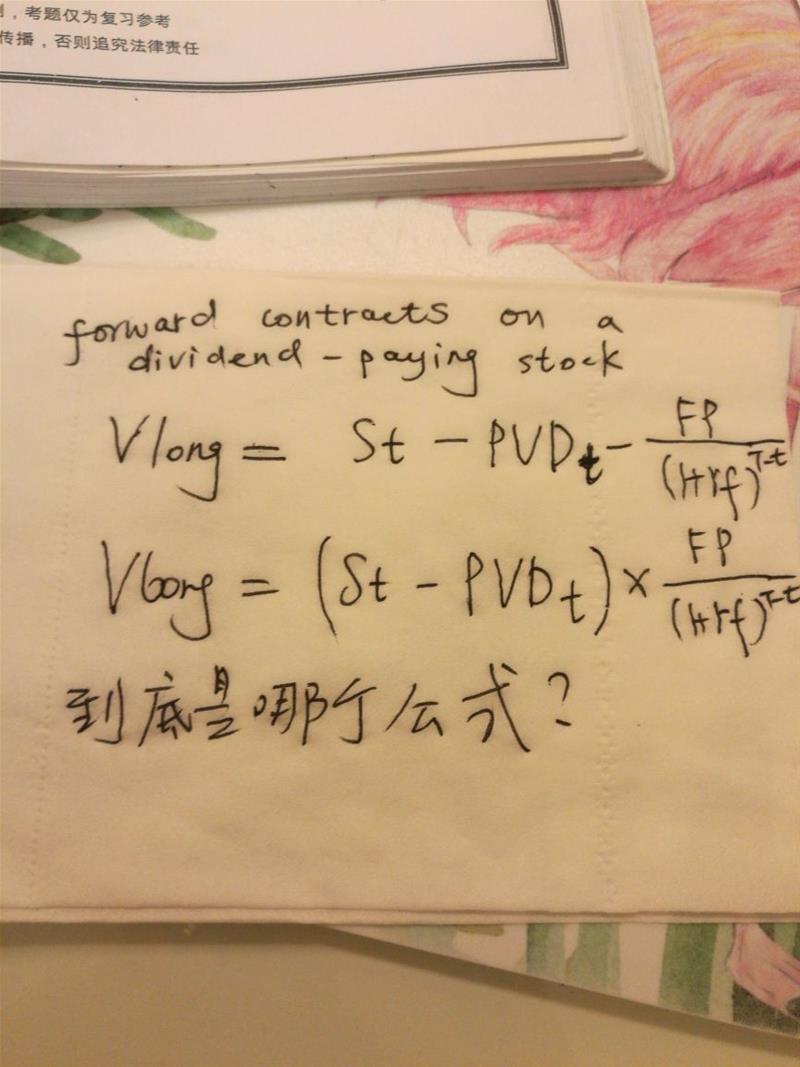 ，考题仅为复习参考
传播，否则追究法律责任
forward contracts on a
dividend-paying stock
Vlong = St - PVDt - FP/(1+rf)^T-t
Vlong = (St - PVDt) × FP/(1+rf)^T-t
到底是哪个公式?